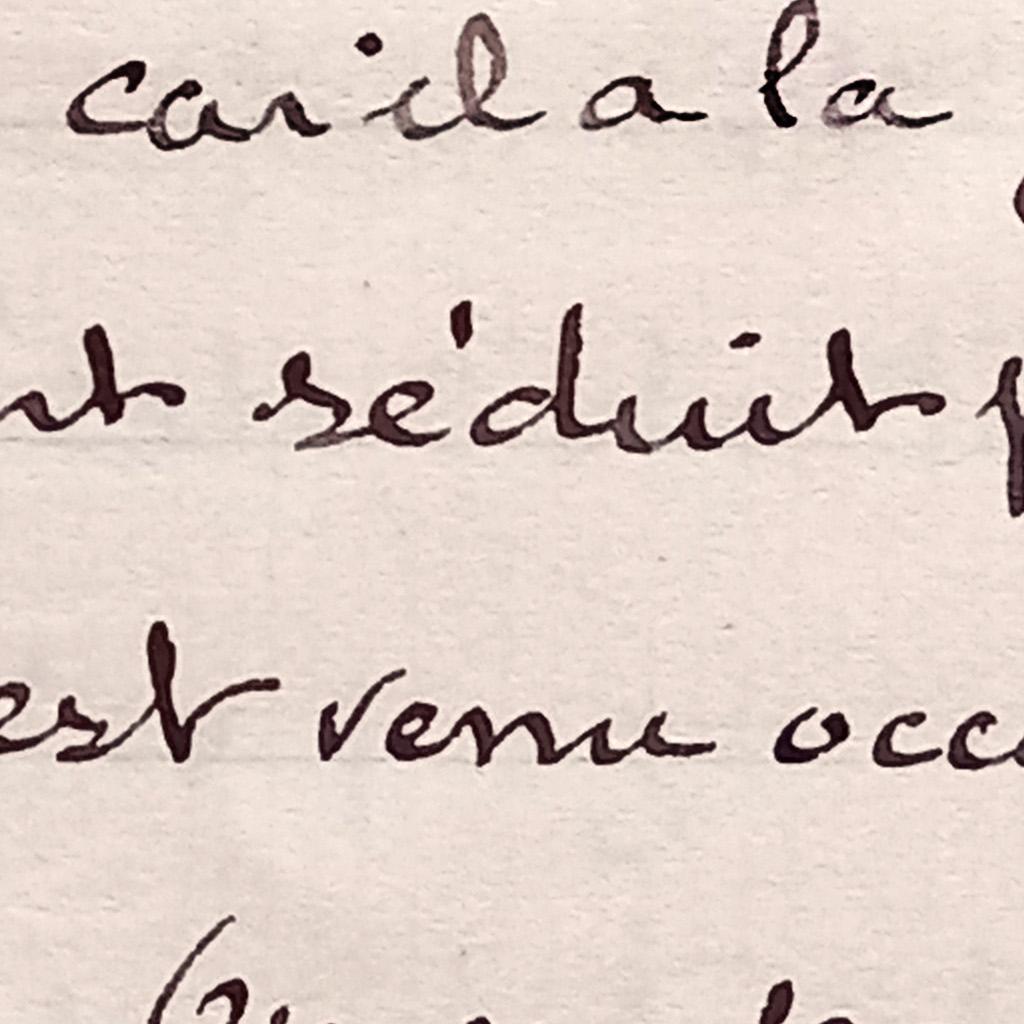 car il a la
séduit
est venu